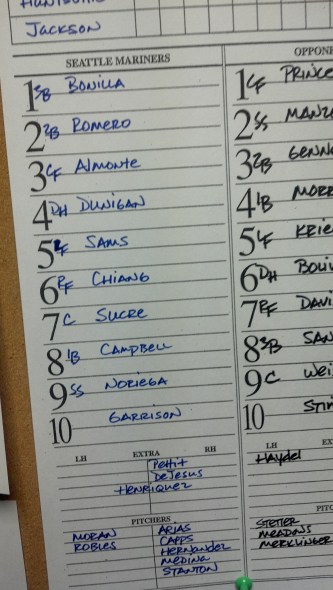 Jackson
SEATTLE MARINERS
1 3B BONILLA
2 2B ROMERO
3 CF Almonte
4 DH DUNIGAN
5 LF SAMS
6 RF CHIANG
7 C SUCRE
8 1B CAMPBELL
9 SS NORIEGA
10 GARRISON
LH EXTRA RH
Pettit
DeJesus
HENRIQUEZ
PITCHERS
MORAN ARIAS
ROBLES CAPPS
HERNANDEZ
MEDINA
STANTON
OPPONE
1 CF PRINCE
2 SS MANZ
3 2B GENN
4 1B MORR
5 LF KRIE
6 DH BOLI
7 RF DAVI
8 3B SAN
9 C WEI
10 STI
LH EX
Haydel
PITC
STETER
MEADOWS
MERKLINGER